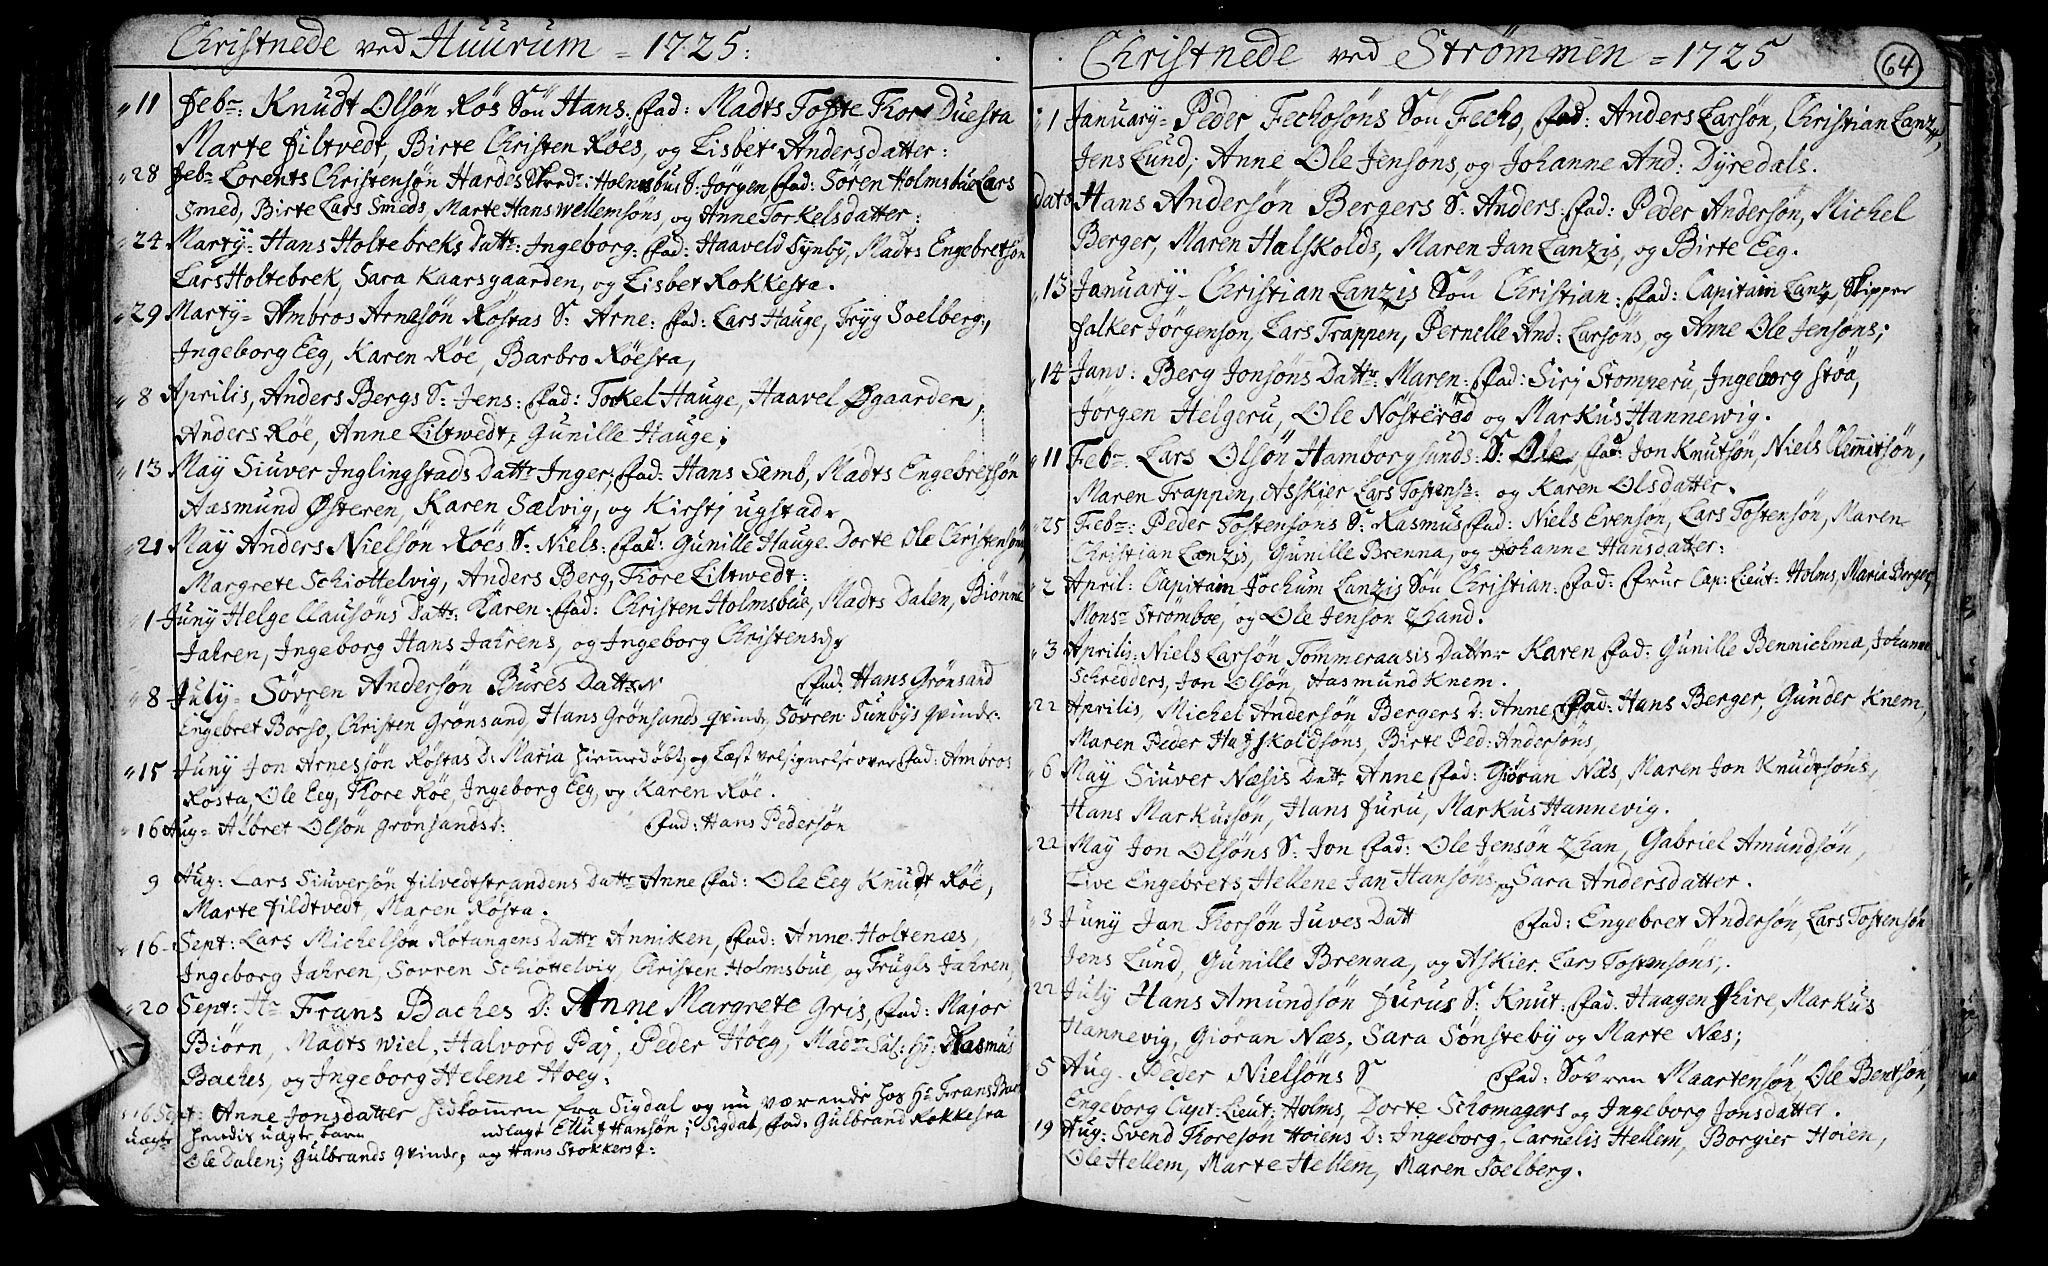 Christnede ved Huurum = 1725:
11 Febr: Knudt Olsøn Røs Søn Hans. Fad: Madts Tofte Thor Duesta
Marte Filtvedt, Birte Christen Röes, og Lisbet Andersdatter:
28 Febr Lorents Christensøn Hardes Holmsbus S: Jørgen, Fad: Søren Holmsbue Lars
Smed, Birte Lars Smeds, Marte Hans Wellemsøns, og Anne Torkelsdatter:
24 Marty= Hans Holtebreks Dattr: Ingeborg: Fad: Haaveld Synby, Madts Engebretsøn
Lars Holtebrek, Sara Kaarsgaarden, og Lisbet Rokkesta.
29 Marty= Ambros Arnesøn Röstas S: Arne: Fad: Lars Hauge, Tryg Soelberg,
Ingeborg Eeg, Karen Röe, Barbro Röesta,
8 Aprilis, Anders Bergs S: Jens: Fad: Tockel Hauge, Haavel Øgaarden,
Anders Röe, Anne Liltwedt, Gunille Hauge.
13 May Siuver Inglingstads Dattr Inger, Fad: Hans Semb, Madts Engebretsøn
Aasmund Østeren, Karen Sælvig, og Kirstj ugstad.
21 May Anders Nielsøn Röes S: Niels: Fad: Gunille Hauge. Dorte Ole Christensøn
Margrete Schiöttelvig, Anders Berg, Thore Liltwedt:
1 Juny Helge Clausøns Dattr: Karen: Fad: Christen Holmsbue, Madts Dalen, Biønne
Jahren, Ingeborg Hans Jahrens, og Ingeborg Christensd:
8 July= Sövren Andersøn Bures Dattr N Fad: Hans Grönsand
Engebret Borso, Christen Grönsand, Hans Grönsands qvinde, Sövren Sunbys qvinde.
15 Juny Jon Arnessøn Röstas D: Maria hiemmedöbt, og Læst velsignelse over Fad: Ambros
Rösta, Ole Eeg, Thore Röe, Ingeborg Eeg, og Karen Röe.
16 Aug= Albret Olsøn Grönsands d: Fad: Hans Pedersøn
9 Aug: Lars Siuversøn filvedtstrandens Dattr Anne Fad: Ole Eeg Knudt Röe,
Marte Fildtvedt, Maren Rösta.
16 Sept: Lars Michelsøn Rotangens Dattr Anniken, Fad: Anne Holtenæs,
Ingeborg Jahren, Sövren Schiöttelvig, Christen Holmsbue, og Trugls Jahren,
20 Sept: Hr Frans Baches D: Anne Margrete Gris, Fad: Major
Biörn, Madts Wiel, Halvord Paj, Peder Höeg, Madm Sal: Hr: Rasmus
Baches, og Ingeborg Helene Hoeg.
16 Sept: Anne Jonsdatter hidkommen fra Sigdal og nu værende hos Hr: Frans Bache
uægte hendis uægte barn udlagt Elluf Hansøn i Sigdal, Fad: Gulbrand Rokkesta
Ole Dalen; Gulbrands qvinde, og Hans Stokkers q:
Christnede ved Strömmen = 1725
64
1 January= Peder Fechosøns Søn Fecho, Fad: Anders Larsøn, Christian Lanz,
Jens Lund; Anne Ole Jensøns, og Johanne And: Dyredals.
Dato Hans Andersøn Bergers S: Anders: Fad: Peder Andersøn, Michel
Berger, Maren Halskolds, Maren Jan Lanzis, og Birte Eeg.
13 January= Christian Lanzis Søn Christian: Fad: Capitain Lanz, Skipper
Falker Jörgenson, Lars Trappen, Pernelle And: Larsøns, og Anne Ole Jensøns;
14 Janv: Berg Jonsøns Dattr: Maren: Fad: Sirj Stomperu, Ingeborg Støa,
Jørgen Helgeru, Ole Nösteröd og Markus Hannewig.
11 Febr: Lars Olsøn Hamborgsunds: S: Ole, Fad: Jon Knutsøn, Niels Clemitsøn,
Maren Trappen, Asskjer Lars Tostensøns: og Karen Olsdatter.
25 Febr: Peder Tostensøns S: Rasmus, Fad: Niels Evensøn, Lars Tostensøn, Maren
Christian Lanzis, Gunille Brenna, og Johanne Hansdatter:
2 April: Capitain Jochum Lanzis Søn Christian: Fad: Frue Cap: Lieut: Holms, Maria Berger,
Monsr Strömboe, og Ole Jensøn Zhand.
3 Aprilis: Niels Larsøn Tömmeraasis Datter Karen Fad: Gunille Bennichma, Johanne
Schredders, Jon Olsøn, Aasmund Knem.
22 Aprilis, Michel Andersøn Bergers D: Anne Fad: Hans Berger, Gunder Knem,
Maren Peder Halskoldsøns, Birte Ped: Andersøns
6 May Siuver Næsis Dattr Anne Fad: Giöran Næs, Maren Jon Knudtsøns,
Hans Markusøn, Hans Furu, Markus Hannevig.
22 May Jon Olsøns S: Jon Fad: Ole Jensøn Zhan, Gabriel Amundsøn,
Live Engebrets, Hellene Jan Hansøns, og Sara Andersdatter.
3 Juny Jan Thorsøn Juves Datt Fad: Engebret Andersøn, Lars Tostensøn
Jens Lund, Gunille Brenna, og Askier Lars Tostensøns;
22 July Hans Amundsøn Furus S: Knut: Fad: Haagen Ihire, Markus
Hannevig, Giöran Næs, Sara Sønsteby og Marte Næs;
5 Aug. Peder Nielsøns S Fad: Sövren Maartensøn, Ole Bentsøn,
Engeborg Capt: Lieut: Holms, Dorte Schomagers og Ingeborg Jonsdatter.
19 Aug: Svend Thoresøn Höiens D: Ingeborg, Carnelis Hellem, Borgier Höien,
Ole Hellem, Marte Hellem, Maren Soelberg.